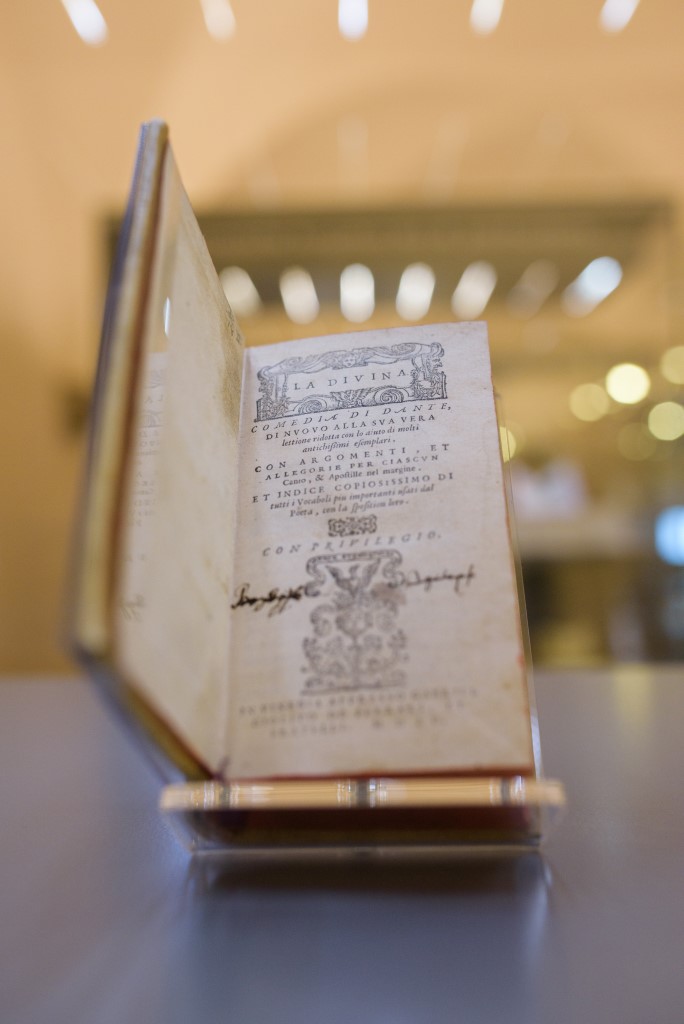 LA DIVINA
COMEDIA DI DANTE,
DI NUOVO ALLA SVA VERA
lettione ridotta con lo aiuto di molti
antichissimi esemplari.
CON ARGOMENTI, ET
ALLEGORIE PER CIASCVN
Canto, & Apostille nel margine.
ET INDICE COPIOSISSIMO DI
tutti i Vocaboli piu importanti usati dal
Poeta, con la sposition loro.
CON PRIVILEGIO.
IN VINEGIA APPRESSO GABRIEL
GIOLITO DE FERRARI, ET
FRATELLI. M D L